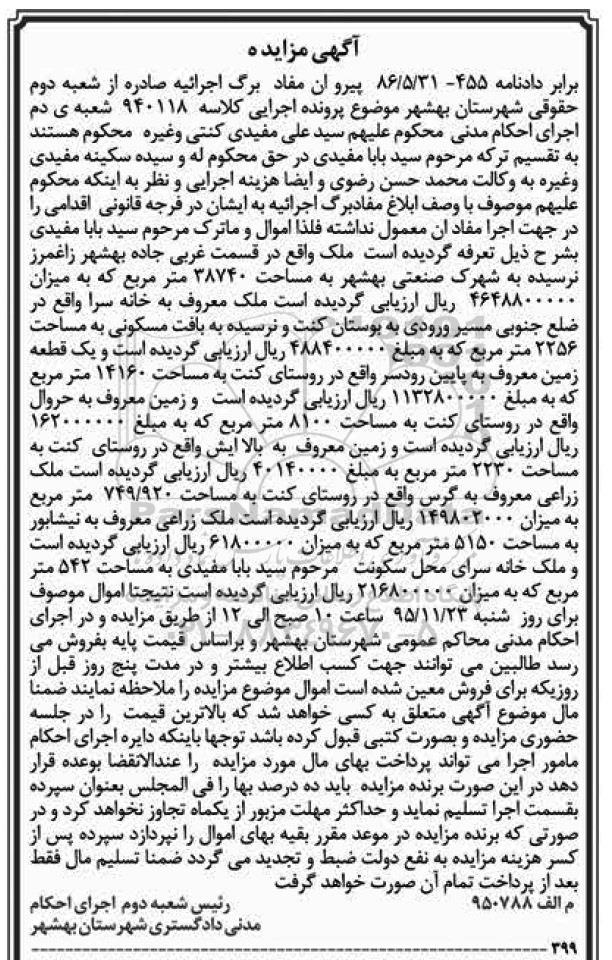 آگهی مزایده
برابر دادنامه ۴۵۵- ۸۶/۵/۳۱ پیرو ان مفاد برگ اجرائیه صادره از شعبه دوم
حقوقی شهرستان بهشهر موضوع پرونده اجرایی کلاسه ۹۴۰۱۱۸ شعبه ی دم
اجرای احکام مدنی محکوم علیهم سید علی مفیدی کنتی وغیره محکوم هستند
به تقسیم ترکه مرحوم سید بابا مفیدی در حق محکوم له و سیده سکینه مفیدی
وغیره به وکالت محمد حسن رضوی و ایضا هزینه اجرایی و نظر به اینکه محکوم
علیهم موصوف با وصف ابلاغ مفادبرگ اجرائیه به ایشان در فرجه قانونی اقدامی را
در جهت اجرا مفاد ان معمول نداشته فلذا اموال و ماترک مرحوم سید بابا مفیدی
بشر ح ذیل تعرفه گردیده است ملک واقع در قسمت غربی جاده بهشهر زاغمرز
نرسیده به شهرک صنعتی بهشهر به مساحت ۳۸۷۴۰ متر مربع که به میزان
۴۶۴۸۸۰۰۰۰۰ ریال ارزیابی گردیده است ملک معروف به خانه سرا واقع در
ضلع جنوبی مسیر ورودی به بوستان کنت و نرسیده به بافت مسکونی به مساحت
۲۲۵۶ متر مربع که به مبلغ ۴۸۸۴۰۰۰۰۰ ریال ارزیابی گردیده است و یک قطعه
زمین معروف به پایین رودسر واقع در روستای کنت به مساحت ۱۴۱۶۰ متر مربع
که به مبلغ ۱۱۳۲۸۰۰۰۰۰ ریال ارزیابی گردیده است و زمین معروف به حروال
واقع در روستای کنت به مساحت ۸۱۰۰ متر مربع که به مبلغ ۱۶۲۰۰۰۰۰۰۰
ریال ارزیابی گردیده است و زمین معروف به بالا ایش واقع در روستای کنت به
مساحت ۲۲۳۰ متر مربع به مبلغ ۴۰۱۴۰۰۰۰ ریال ارزیابی گردیده است ملک
زراعی معروف به گرس واقع در روستای کنت به مساحت ۷۴۹/۹۲۰ متر مربع
به میزان ریال ارزیابی گردیده است ملک زراعی معروف به نیشابور
به مساحت ۵۱۵۰ متر مربع که به میزان ۶۱۸۰۰۰۰۰ ریال ارزیابی گردیده است
و ملک خانه سرای محل سکونت مرحوم سید بابا مفیدی به مساحت ۵۴۲ متر
مربع که به میزان ۲۱۶۸۰۰۰۰۰ ریال ارزیابی گردیده است نتیجتا اموال موصوف
برای روز شنبه ۹۵/۱۱/۲۳ ساعت ۱۰ صبح الی ۱۲ از طریق مزایده و در اجرای
احکام مدنی محاکم عمومی شهرستان بهشهر و براساس قیمت پایه بفروش می
رسد طالبین می توانند جهت کسب اطلاع بیشتر و در مدت پنج روز قبل از
روزیکه برای فروش معین شده است اموال موضوع مزایده را ملاحظه نمایند ضمنا
مال موضوع آگهی متعلق به کسی خواهد شد که بالاترین قیمت را در جلسه
حضوری مزایده و بصورت کتبی قبول کرده باشد توجها باینکه دایره اجرای احکام
مامور اجرا می تواند پرداخت بهای مال مورد مزایده را عندالانقضا بوعده قرار
دهد در این صورت برنده مزایده باید ده درصد بها را فی المجلس بعنوان سپرده
بقسمت اجرا تسلیم نماید و حداکثر مهلت مزبور از یکماه تجاوز نخواهد کرد و در
صورتی که برنده مزایده در موعد مقرر بقیه بهای اموال را نپردازد سپرده پس از
کسر هزینه مزایده به نفع دولت ضبط و تجدید می گردد ضمنا تسلیم مال فقط
بعد از پرداخت تمام آن صورت خواهد گرفت
م الف ۹۵۰۷۸۸ رئیس شعبه دوم اجرای احکام
مدنی دادگستری شهرستان بهشهر
۳۹۹